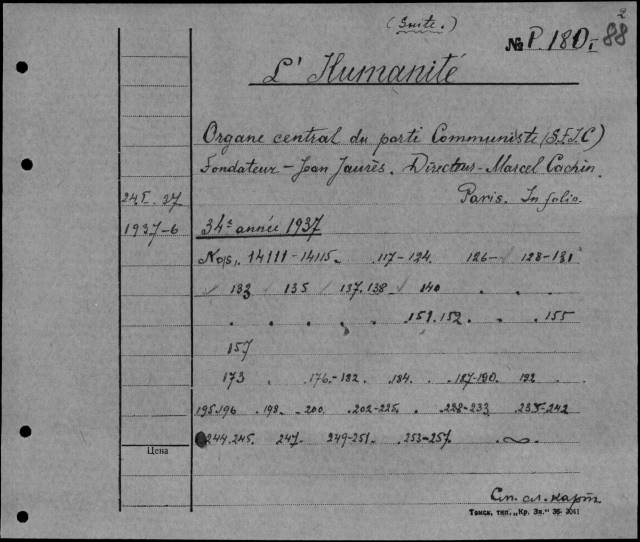 2
(Suite.)
№ P. 180-I 88
L'Humanité
Organe central du parti Communiste (S.F.I.C)
Fondateur – Jean Jaurès. Directeur – Marcel Cachin.
24 I. 37 Paris. In folio.
1937-6 34e année 1937
Nos. 14111-14115. 117-124. 126- 128-131
133 135 137.138 140
151.152 155
157
173 176.-182. 184. 187-190. 192
195.196 198. 200. 202-225. 228-233 235-242
244.245. 247 249-251. 253-257.
Цена
См. сл. карт.
Томск, тип. „Кр. Зн." 36-2041